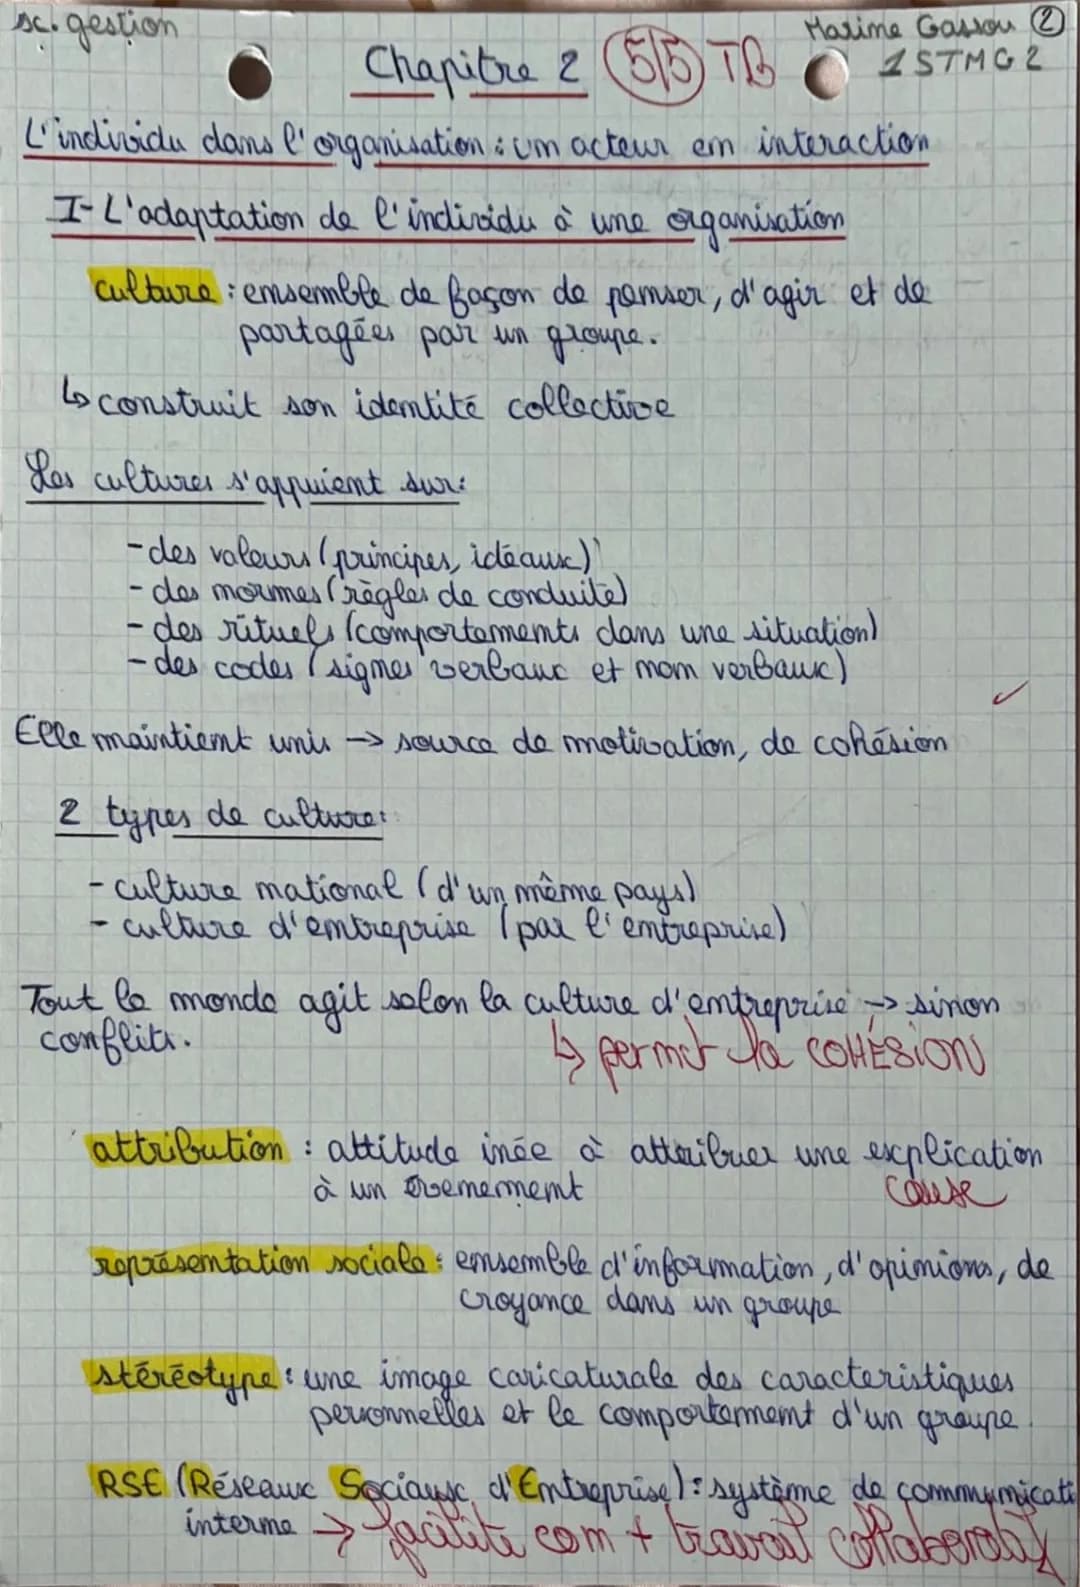 sc. gestion
Maxime Gassou ②
Chapitre 2 5/5 TB 1STMG2
L'individu dans l'organisation : un acteur en interaction
I- L'adaptation de l'individu à une organisation
culture : ensemble de façon de penser, d'agir et de
partagées par un groupe.
↳ construit son identité collective
Les cultures s'appuient sur :
- des valeurs (principes, idéaux)
- des normes (règles de conduite)
- des rituels (comportements dans une situation)
- des codes (signes verbaux et non verbaux)
Elle maintient unis → source de motivation, de cohésion
2 types de culture :
- culture national (d'un même pays)
- culture d'entreprise (par l'entreprise)
Tout le monde agit selon la culture d'entreprise → sinon
conflits.
↳ permet la COHÉSION
attribution : attitude inée à attribuer une explication
à un évenement cause
représentation sociale : ensemble d'information, d'opinions, de
croyance dans un groupe
stéréotype : une image caricaturale des caractéristiques
personnelles et le comportement d'un groupe.
RSE (Réseaux Sociaux d'Entreprise) : système de communicati
interne → facilite com + travail collaboratif